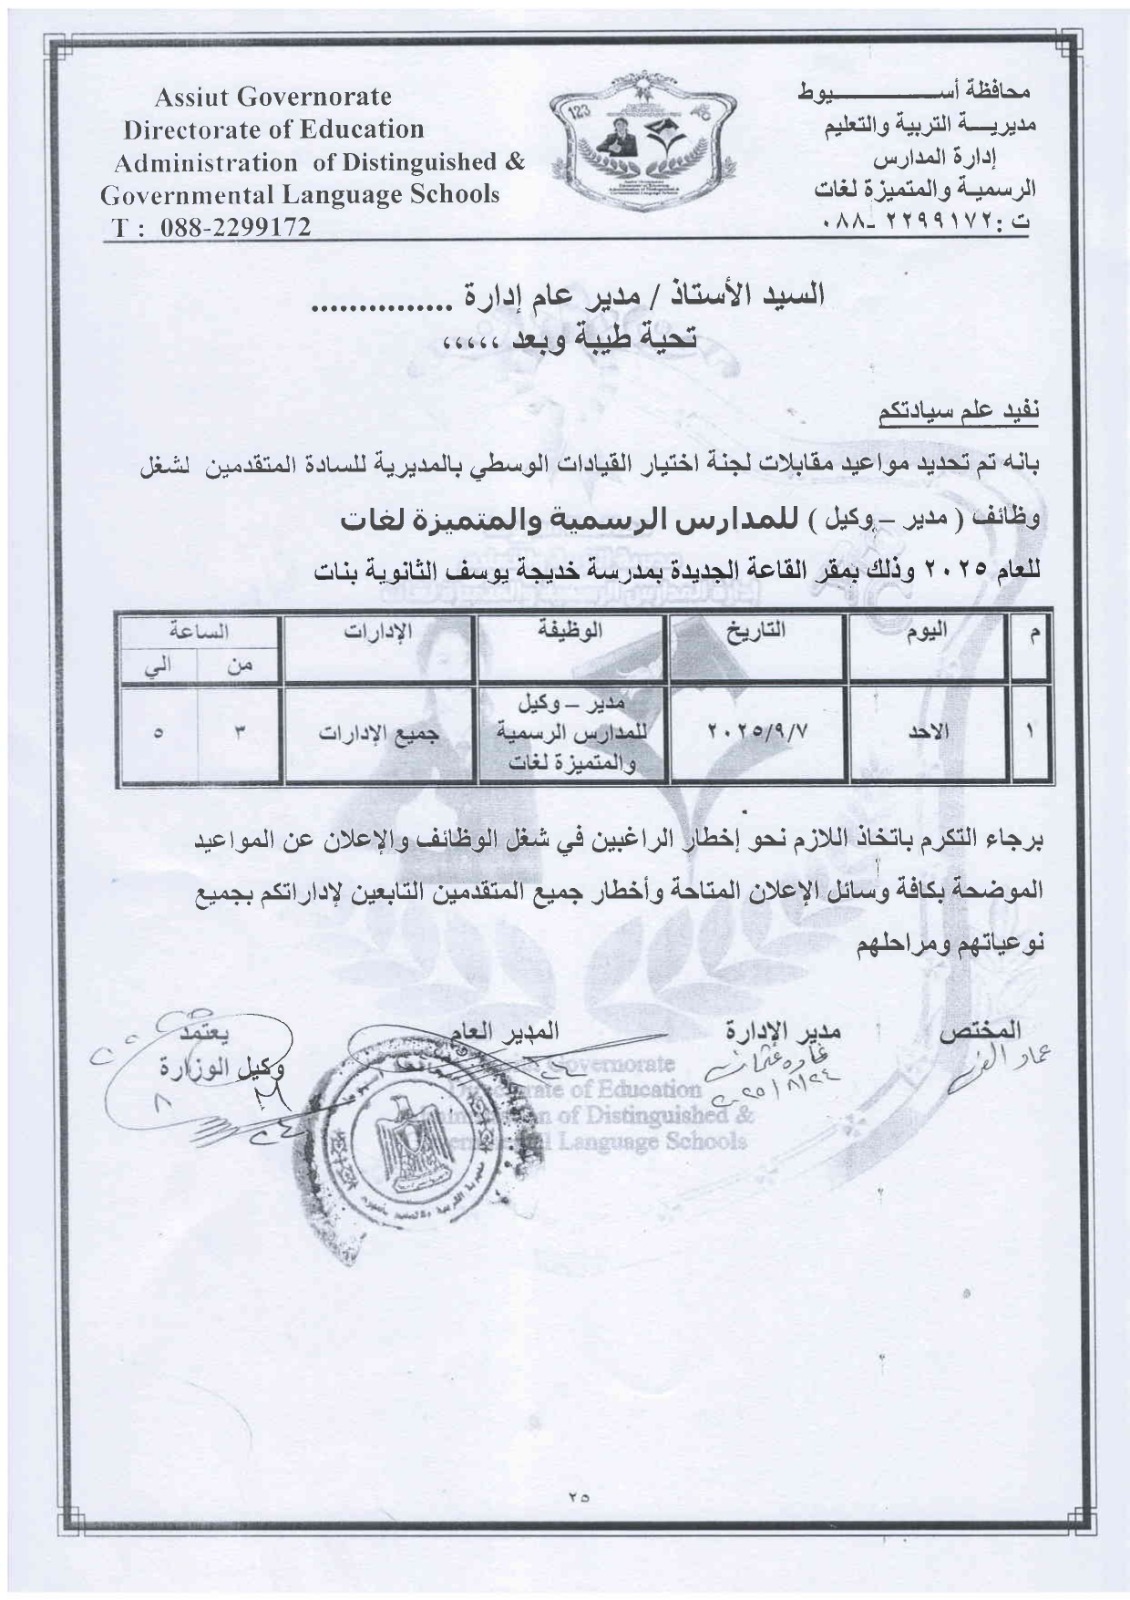 Assiut Governorate
Directorate of Education
Administration of Distinguished &
Governmental Language Schools
T : 088-2299172
محافظة أســـــــــيوط
مديريـــة التربية والتعليم
إدارة المدارس
الرسمية والمتميزة لغات
ت : ٢٢٩٩١٧٢ -٠٨٨
123
السيد الأستاذ / مدير عام إدارة ...............
تحية طيبة وبعد ،،،،،
نفيد علم سيادتكم
بانه تم تحديد مواعيد مقابلات لجنة اختيار القيادات الوسطي بالمديرية للسادة المتقدمين لشغل
وظائف ( مدير – وكيل ) للمدارس الرسمية والمتميزة لغات
للعام ٢٠٢٥ وذلك بمقر القاعة الجديدة بمدرسة خديجة يوسف الثانوية بنات
م اليوم التاريخ الوظيفة الإدارات الساعة
من الي
١ الاحد ٢٠٢٥/٩/٧ مدير – وكيل
للمدارس الرسمية
والمتميزة لغات
جميع الإدارات ٣ ٥
برجاء التكرم باتخاذ اللازم نحو إخطار الراغبين في شغل الوظائف والإعلان عن المواعيد
الموضحة بكافة وسائل الإعلان المتاحة وأخطار جميع المتقدمين التابعين لإداراتكم بجميع
نوعياتهم ومراحلهم
المختص مدير الإدارة المدير العام يعتمد
وكيل الوزارة
عماد
غادة عثمان
٢٠٢٥/٨/٢٤
Governorate
Directorate of Education
of Distinguished &
Language Schools
٢٥